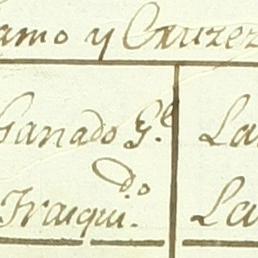 amo y Cruzez
Ganado G.l La
d.o
Traiqui. La